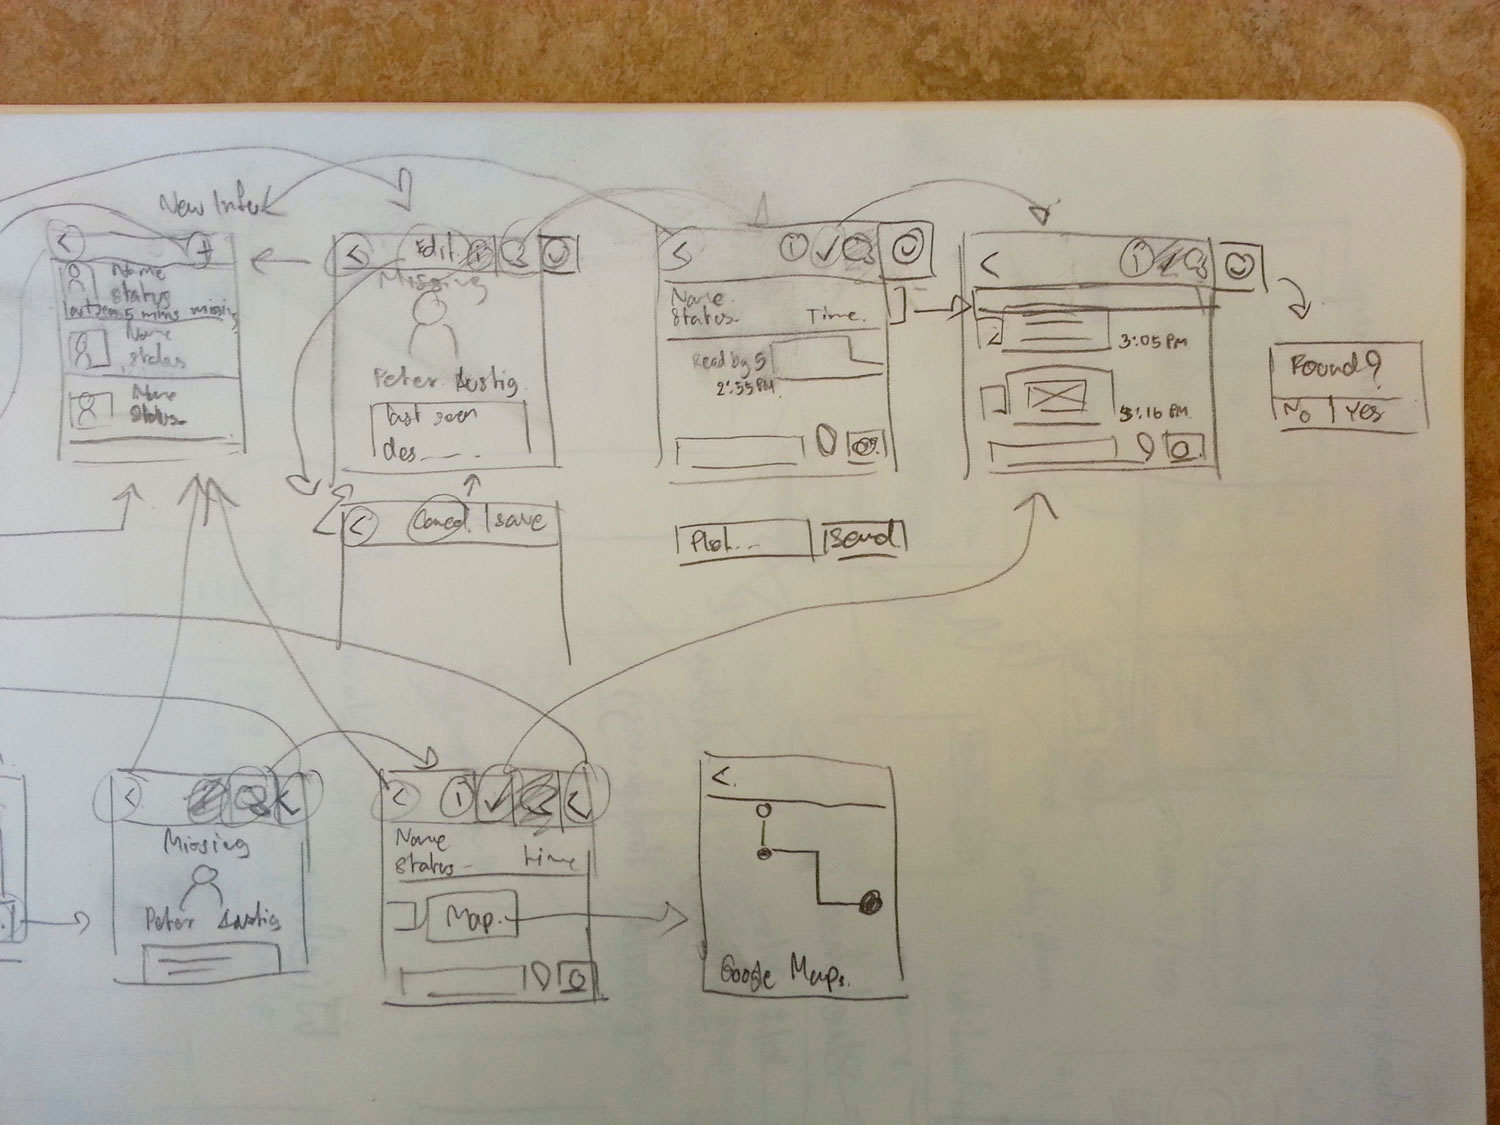 New Info
Name
Status
last seen 5 mins missing
Name
status
Name
Status
Edit
Missing
Peter Lustig
last seen
des
Cancel
save
Name
Status
Time
Read by 5
2:55 PM
Plot...
Send
3:05 PM
3:16 PM
Found?
No
Yes
Missing
Peter Lustig
Name
Status
time
Map
Google Maps